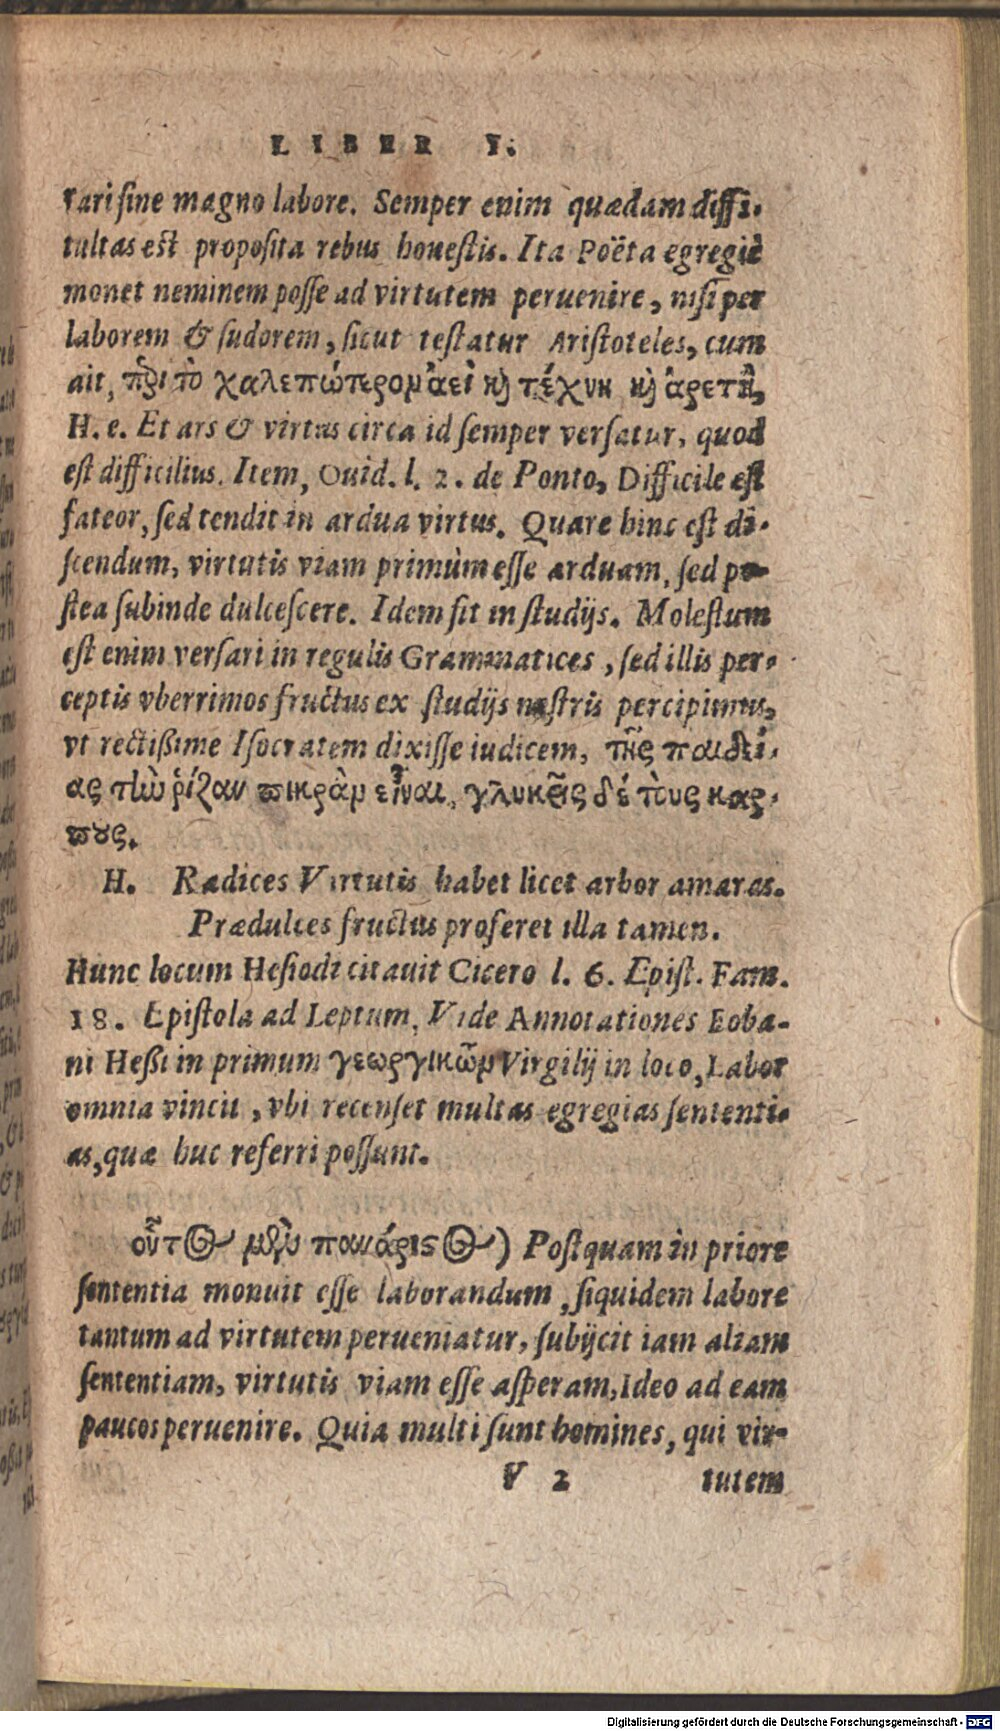 LIBER I.
rari sine magno labore. Semper enim quædam diffi-
cultas est proposita rebus honestis. Ita Poëta egregiè
monet neminem posse ad virtutem peruenire, nisi per
laborem & sudorem, sicut testatur Aristoteles, cum
ait, περὶ τὸ χαλεπώτερον ἀεὶ καὶ τέχνη καὶ ἀρετὴ,
H. e. Et ars & virtus circa id semper versatur, quod
est difficilius. Item, Ouid. l. 2. de Ponto, Difficile est
fateor, sed tendit in ardua virtus. Quare hinc est di-
scendum, virtutis viam primùm esse arduam, sed po-
stea subinde dulcescere. Idem fit in studijs. Molestum
est enim versari in regulis Grammatices, sed illis per-
ceptis vberrimos fructus ex studijs nostris percipimus,
vt rectißime Isocratem dixisse iudicem, τῆς παιδεί-
ας τὼ ῥίζαν πικρὰν εἶναι, γλυκεῖς δέ τοὺς καρ-
πούς.
H. Radices Virtutis habet licet arbor amaras.
Prædulces fructus proferet illa tamen.
Hunc locum Hesiodi citauit Cicero l. 6. Epist. Fam.
18. Epistola ad Leptum, Vide Annotationes Eoba-
ni Heßi in primum γεωργικῶν Virgilij in loco, Labor
omnia vincit, vbi recenset multas egregias sententi-
as, quæ huc referri possunt.
οὗτος μὲν πανάριστος) Postquam in priore
sententia monuit esse laborandum, siquidem labore
tantum ad virtutem perueniatur, subijcit iam aliam
sententiam, virtutis viam esse asperam, Ideo ad eam
paucos peruenire. Quia multi sunt homines, qui vir-
V 2 tutem
Digitalisierung gefördert durch die Deutsche Forschungsgemeinschaft - DFG